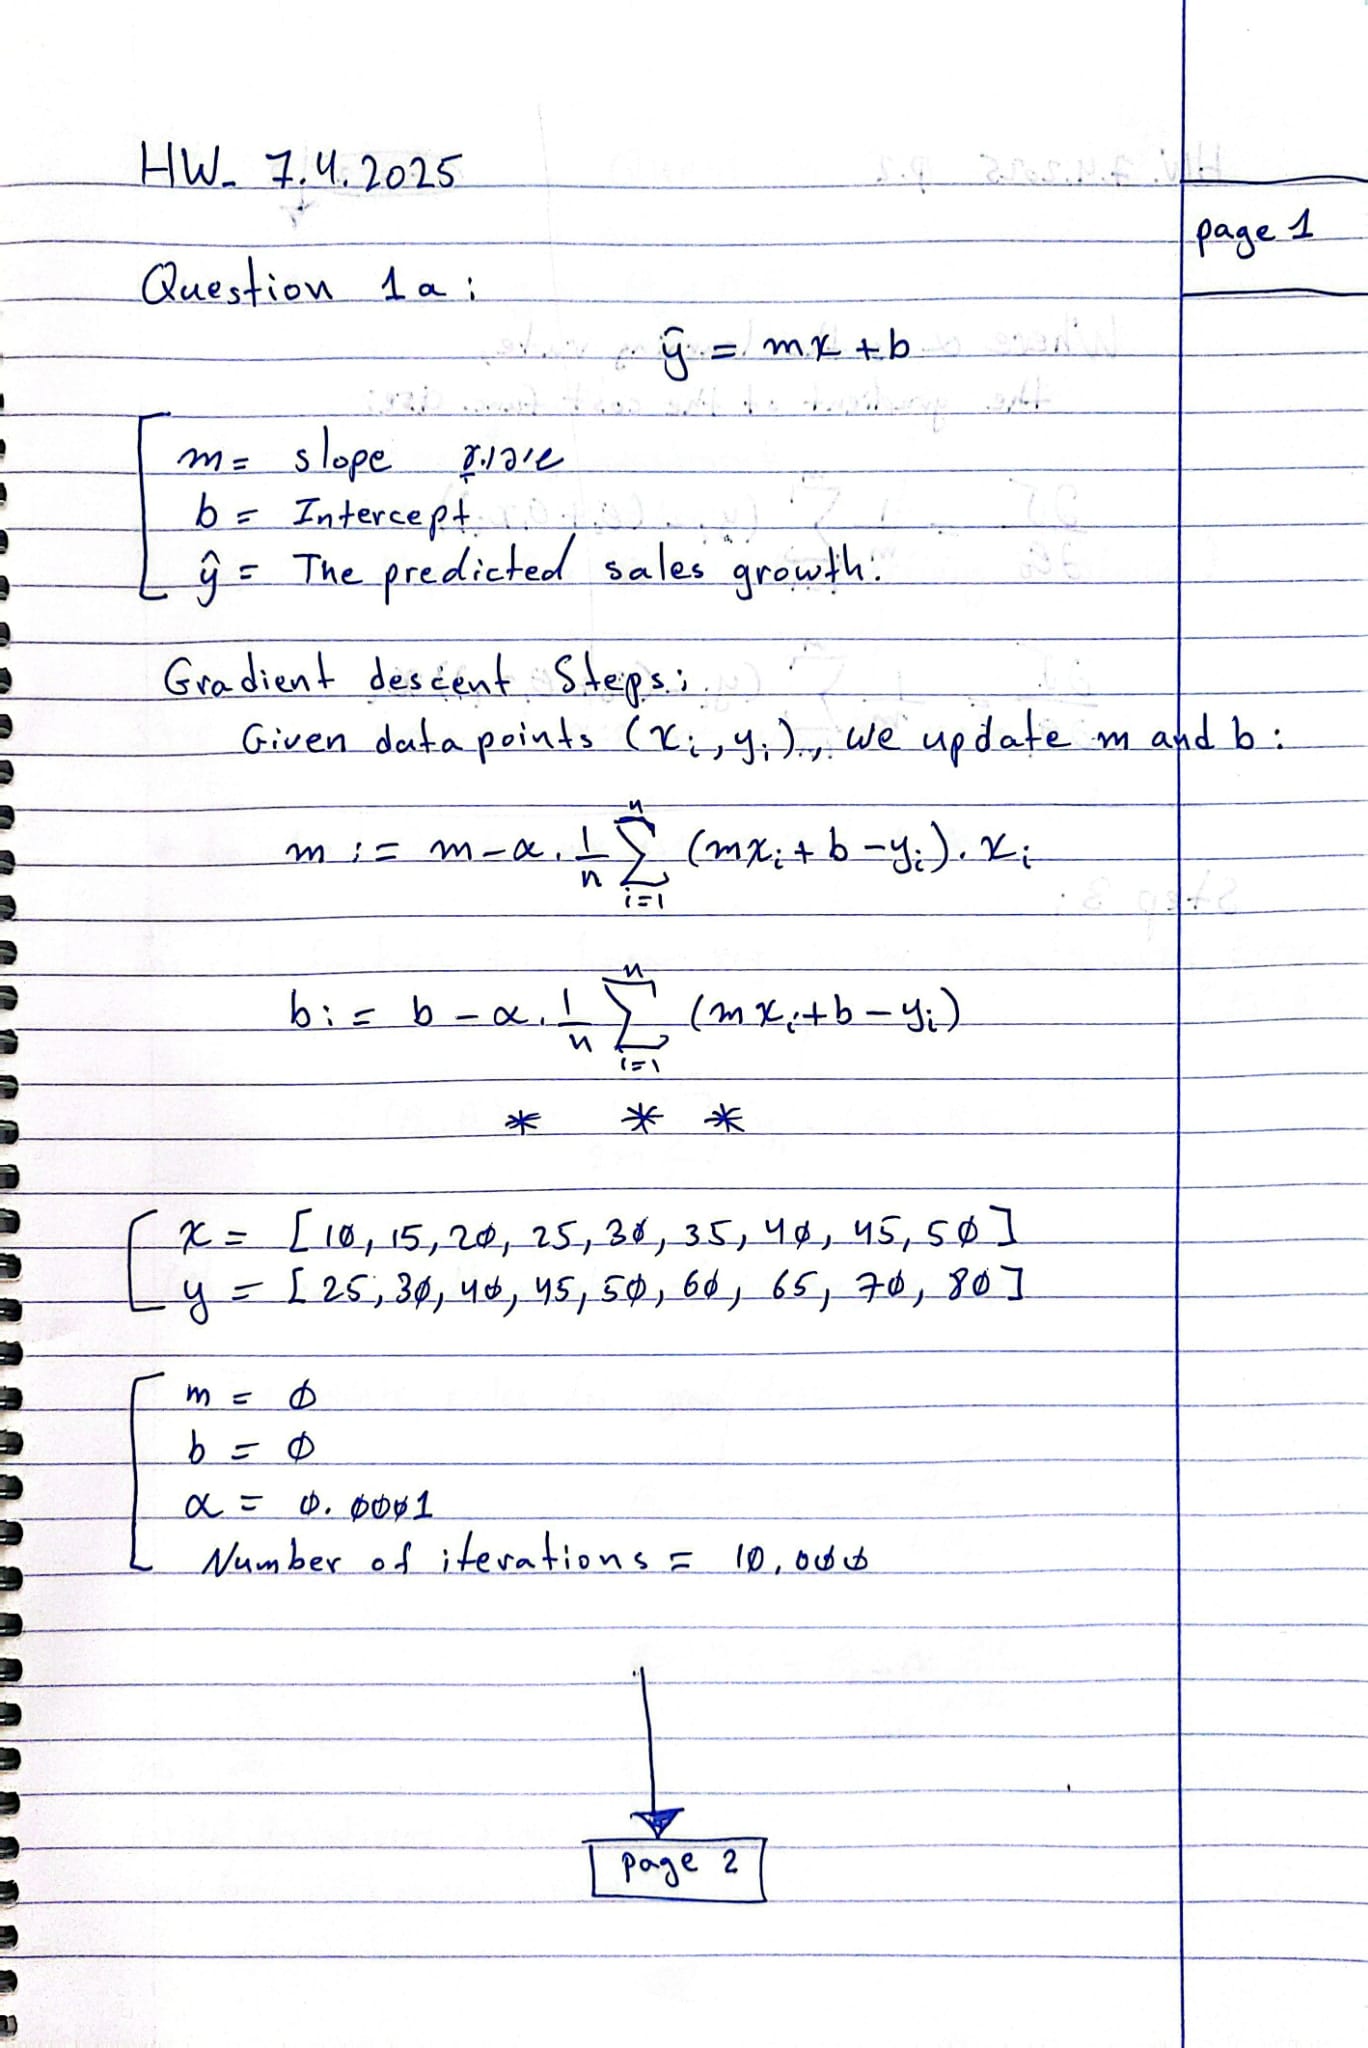 HW- 7.4.2025
page 1
Question 1a:
ŷ = mx + b
m = slope שיפוע
b = Intercept
ŷ = The predicted sales growth.
Gradient descent Steps:
Given data points (xᵢ, yᵢ), we update m and b:
m := m - α . 1/n ∑ⁿᵢ₌₁ (mxᵢ + b - yᵢ) . xᵢ
b := b - α . 1/n ∑ⁿᵢ₌₁ (mxᵢ + b - yᵢ)
* * *
x = [10, 15, 20, 25, 30, 35, 40, 45, 50]
y = [25, 30, 40, 45, 50, 60, 65, 70, 80]
m = 0
b = 0
α = 0.0001
Number of iterations = 10,000
page 2